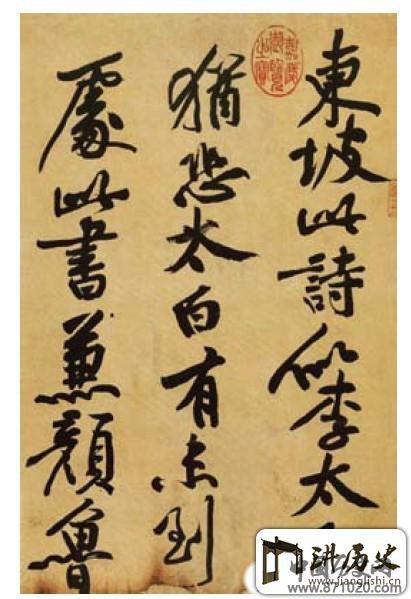 東坡此詩似李太
猶恐太白有未到
處此書兼顏魯
嘉慶御覽之寶
讲历史
www.jianglishi.cn
www.871020.com